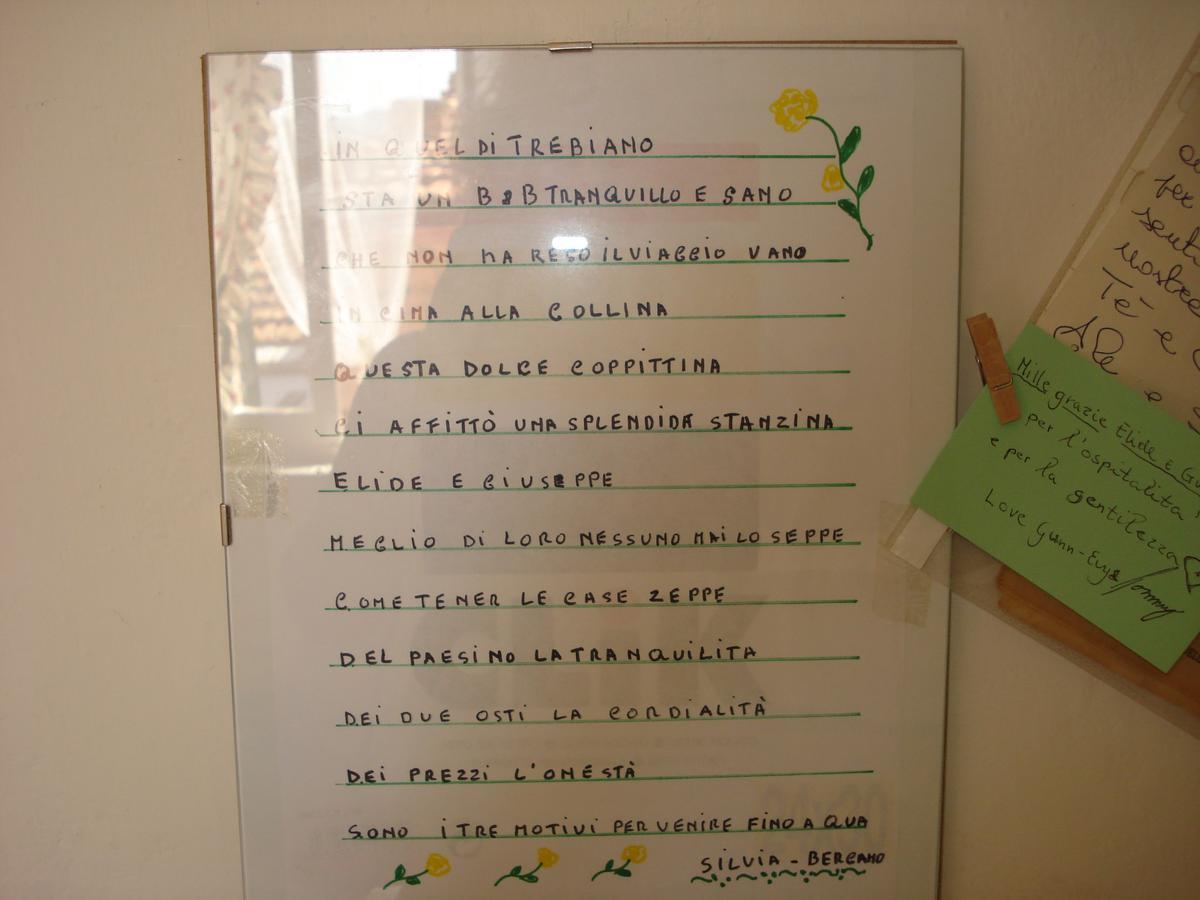 IN QUEL DI TREBIANO
STA UN B&B TRANQUILLO E SANO
CHE NON HA RESO IL VIAGGIO VANO
IN CIMA ALLA COLLINA
QUESTA DOLCE COPPITTINA
CI AFFITTÒ UNA SPLENDIDA STANZINA
ELIDE E GIUSEPPE
MEGLIO DI LORO NESSUNO MAI LO SEPPE
COME TENER LE CASE ZEPPE
DEL PAESINO LA TRANQUILITA
DEI DUE OSTI LA CORDIALITÀ
DEI PREZZI L'ONESTÀ
SONO I TRE MOTIVI PER VENIRE FINO A QUA
SILVIA - BERGAMO
per
Tè e
Ale
e
Mille grazie Elide e
per l'ospitalita
e per la gentilezza
Love Gunn-Evy &